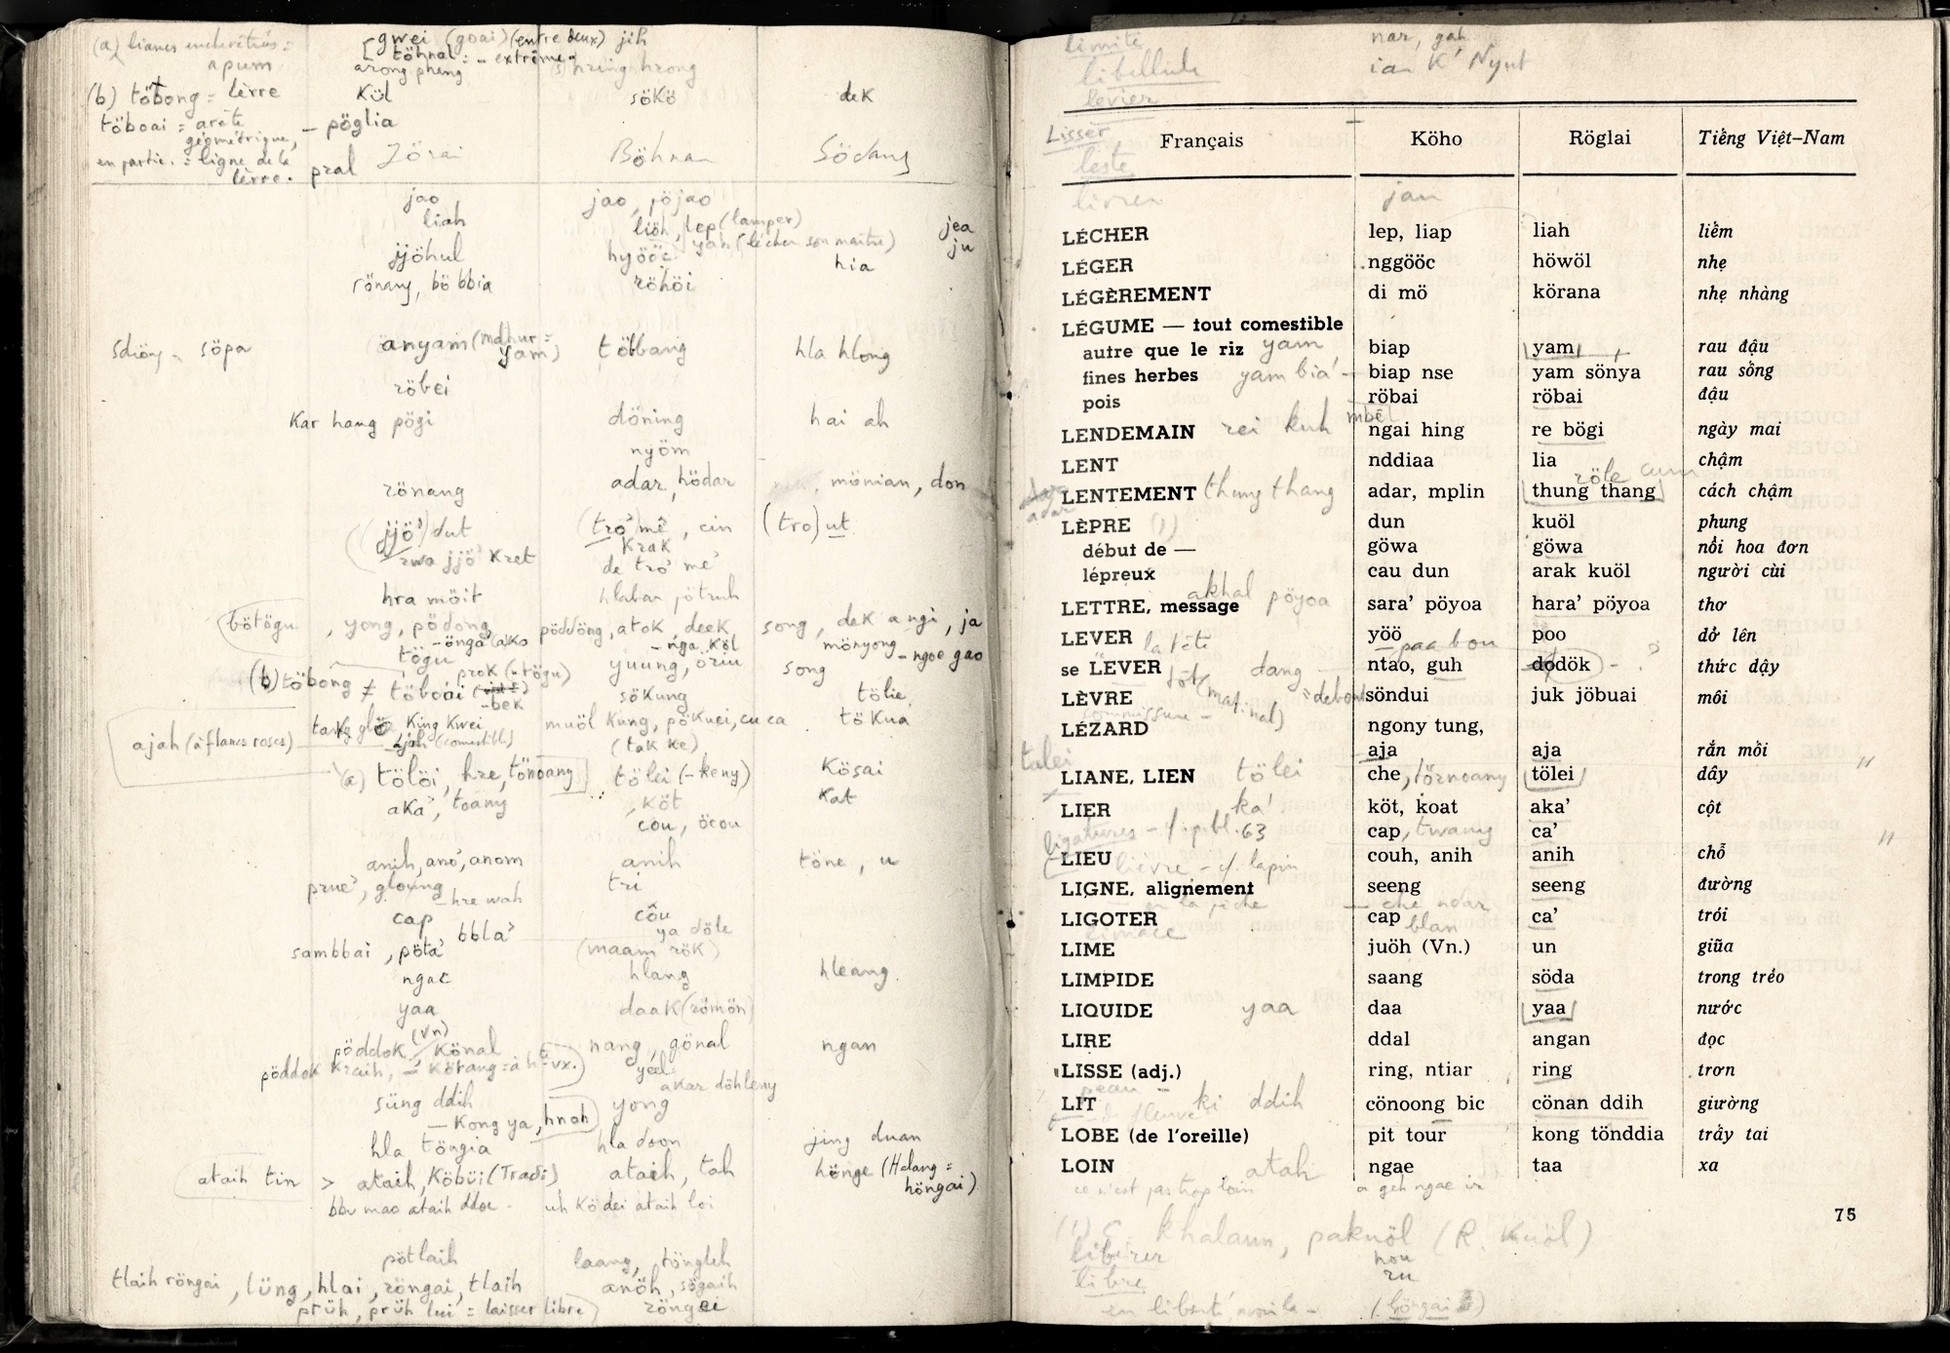 (a) lianes
apum
[gwei (goai) (entre deux) jih
töhnal : - extrême
arong pheng hring hrong
(b) töbong = lèvre Kül sökö dek
töboai = arête - pöglia
géométrique,
en partie. = ligne de la
lèvre. pral Jörai Böhnan Södang
jao jao, pöjao
liah liöh, lep (lamper) jea
jjöhul hyööc yah (lécher son maître) ju
hia
rönang, böbbia röhöi
söpa anyam (mdhur = yam) többang hla hlong
röbei
Kar hang pögi döning hai ah
nyöm
rönang adar, hödar mönian, don
(jjö') dut (tro' mê, cin (tro) ut
rwa jjö' Kret Krak
de tro' mê
hra möit hlabar pötruh
bötögu, yong, pödong, pöddöng, atok, deek song, dek angi, ja
-önga (ako -nga köl mönyong -ngoe gao
tögu yuung, öriu song
prok (-tögu)
(b) töbong ≠ töboai -bek sökung tölie
takg glö, King Kwei muöl Kung, pökuei, cu ca tö Kua
ajah (à flancs roses) ajah (comestible) (tak ke)
(a) tölöi, hre, tönoang tölei (-keny) Kösai
aka', toany köt Kat
cou, öcou
anih, ano', anom anih töne, u
prue', gloung tri
-hre wah
cap côu
bbla' ya döle
sambbai, pöta' (maam rök)
ngac hlang hleang.
yaa daak (römön)
pöddok (Vn) Könal nang, gönal ngan
pöddok Kraih, - Körang = yeel
akar döhleny
süng ddih yong
- Kong ya, hnoh
hla töngia hla doon jing duan
ataih tin > ataih, Köbüi (Tradi) ataih, tah hönge (Halang =
höngai)
bbu mao ataih ddoc. uh kö dei ataih loi
pötlaih laang, töngleh
tlaih röngai, lüng, hlai, röngai, tlaih anöh, sögaih
prüh, prüh lui = laisser libre) röngei
limite nar, gah
libellule ia K' Nyut
levier
Lisser
leste
Français Köho Röglai Tiếng Việt-Nam
livrer jau
LÉCHER lep, liap liah liếm
LÉGER nggööc höwöl nhẹ
LÉGÈREMENT di mö körana nhẹ nhàng
LÉGUME — tout comestible
autre que le riz yam biap yam rau đậu
fines herbes yam bia' biap nse yam sönya rau sống
pois röbai röbai đậu
mbêl
LENDEMAIN rei kuh ngai hing re bögi ngày mai
LENT nddiaa lia chậm
röle
adar LENTEMENT thung thang adar, mplin thung thang cách chậm
LÈPRE (1) dun kuöl phung
début de — göwa göwa nổi hoa đơn
lépreux cau dun arak kuöl người cùi
LETTRE, message akhal pöyoa sara' pöyoa hara' pöyoa thơ
LEVER la tête yöö paa bou poo dở lên
se LEVER dang ntao, guh dodök - ? thức dậy
töt (matinal) = debout
LÈVRE söndui juk jöbuai môi
commissure -
LÉZARD ngony tung,
talei aja aja rắn mồi
LIANE, LIEN tölei che, törnoany tölei dây
LIER ka' köt, koat aka' cột
ligatures - cf. p. bl. 63 cap, twang ca'
LIEU couh, anih anih chỗ
lièvre - cf. lapin
LIGNE, alignement seeng seeng đường
— en la pêche — che ndar
LIGOTER cap blan ca' trói
limace
LIME juöh (Vn.) un giũa
LIMPIDE saang söda trong trẻo
LIQUIDE yaa daa yaa nước
LIRE ddal angan đọc
LISSE (adj.) ring, ntiar ring trơn
peau -
LIT ki ddih cönoong bic cönan ddih giường
- de fleuve
LOBE (de l'oreille) pit tour kong tönddia trầy tai
LOIN atah ngae taa xa
ce n'est pas trop loin a geh ngae ir
75
(1) C. khalaun, pakuöl (R. Kuöl)
libérer hou
libre ru
en liberté (böngai)